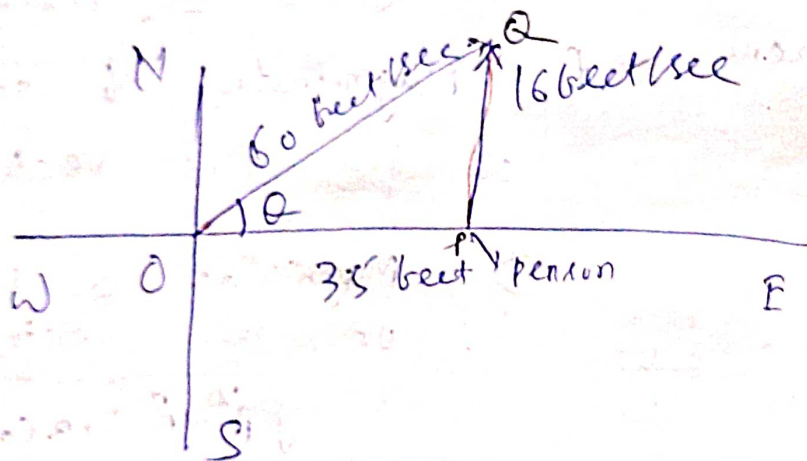 N
Q
60 feet/sec
16 feet/sec
θ
W
O
35 feet
P
person
E
S